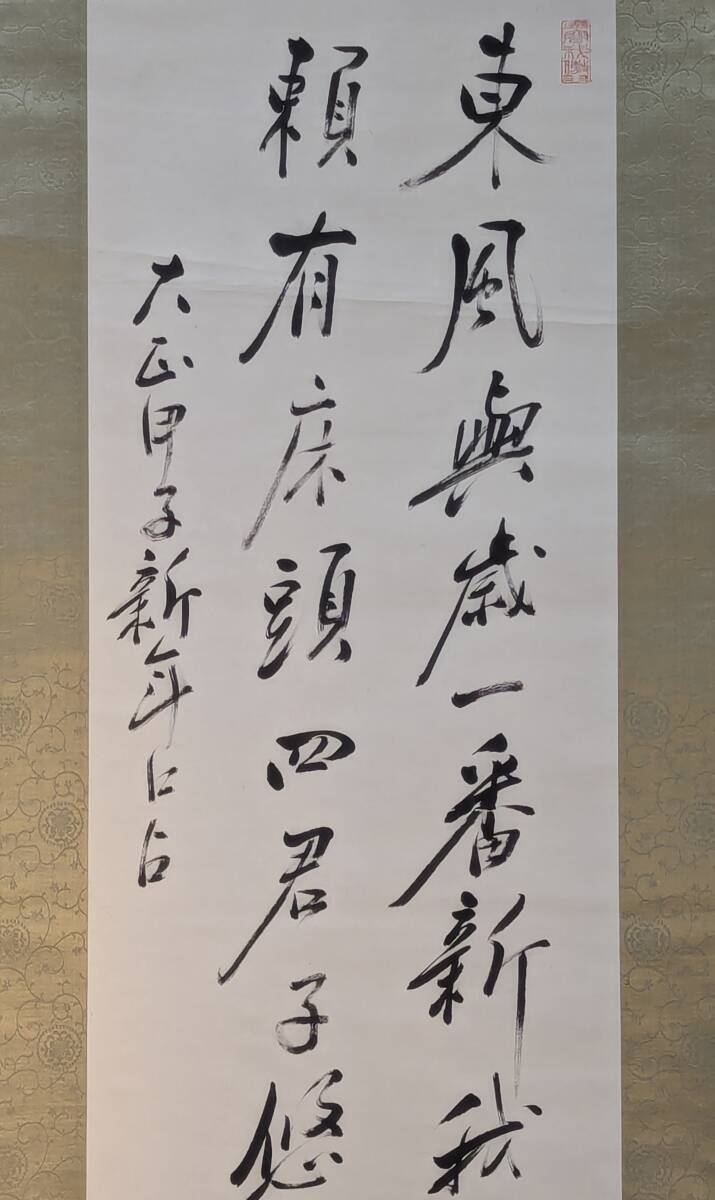 東風與歳一番新我
頼有床頭四君子悠
大正甲子新年口占